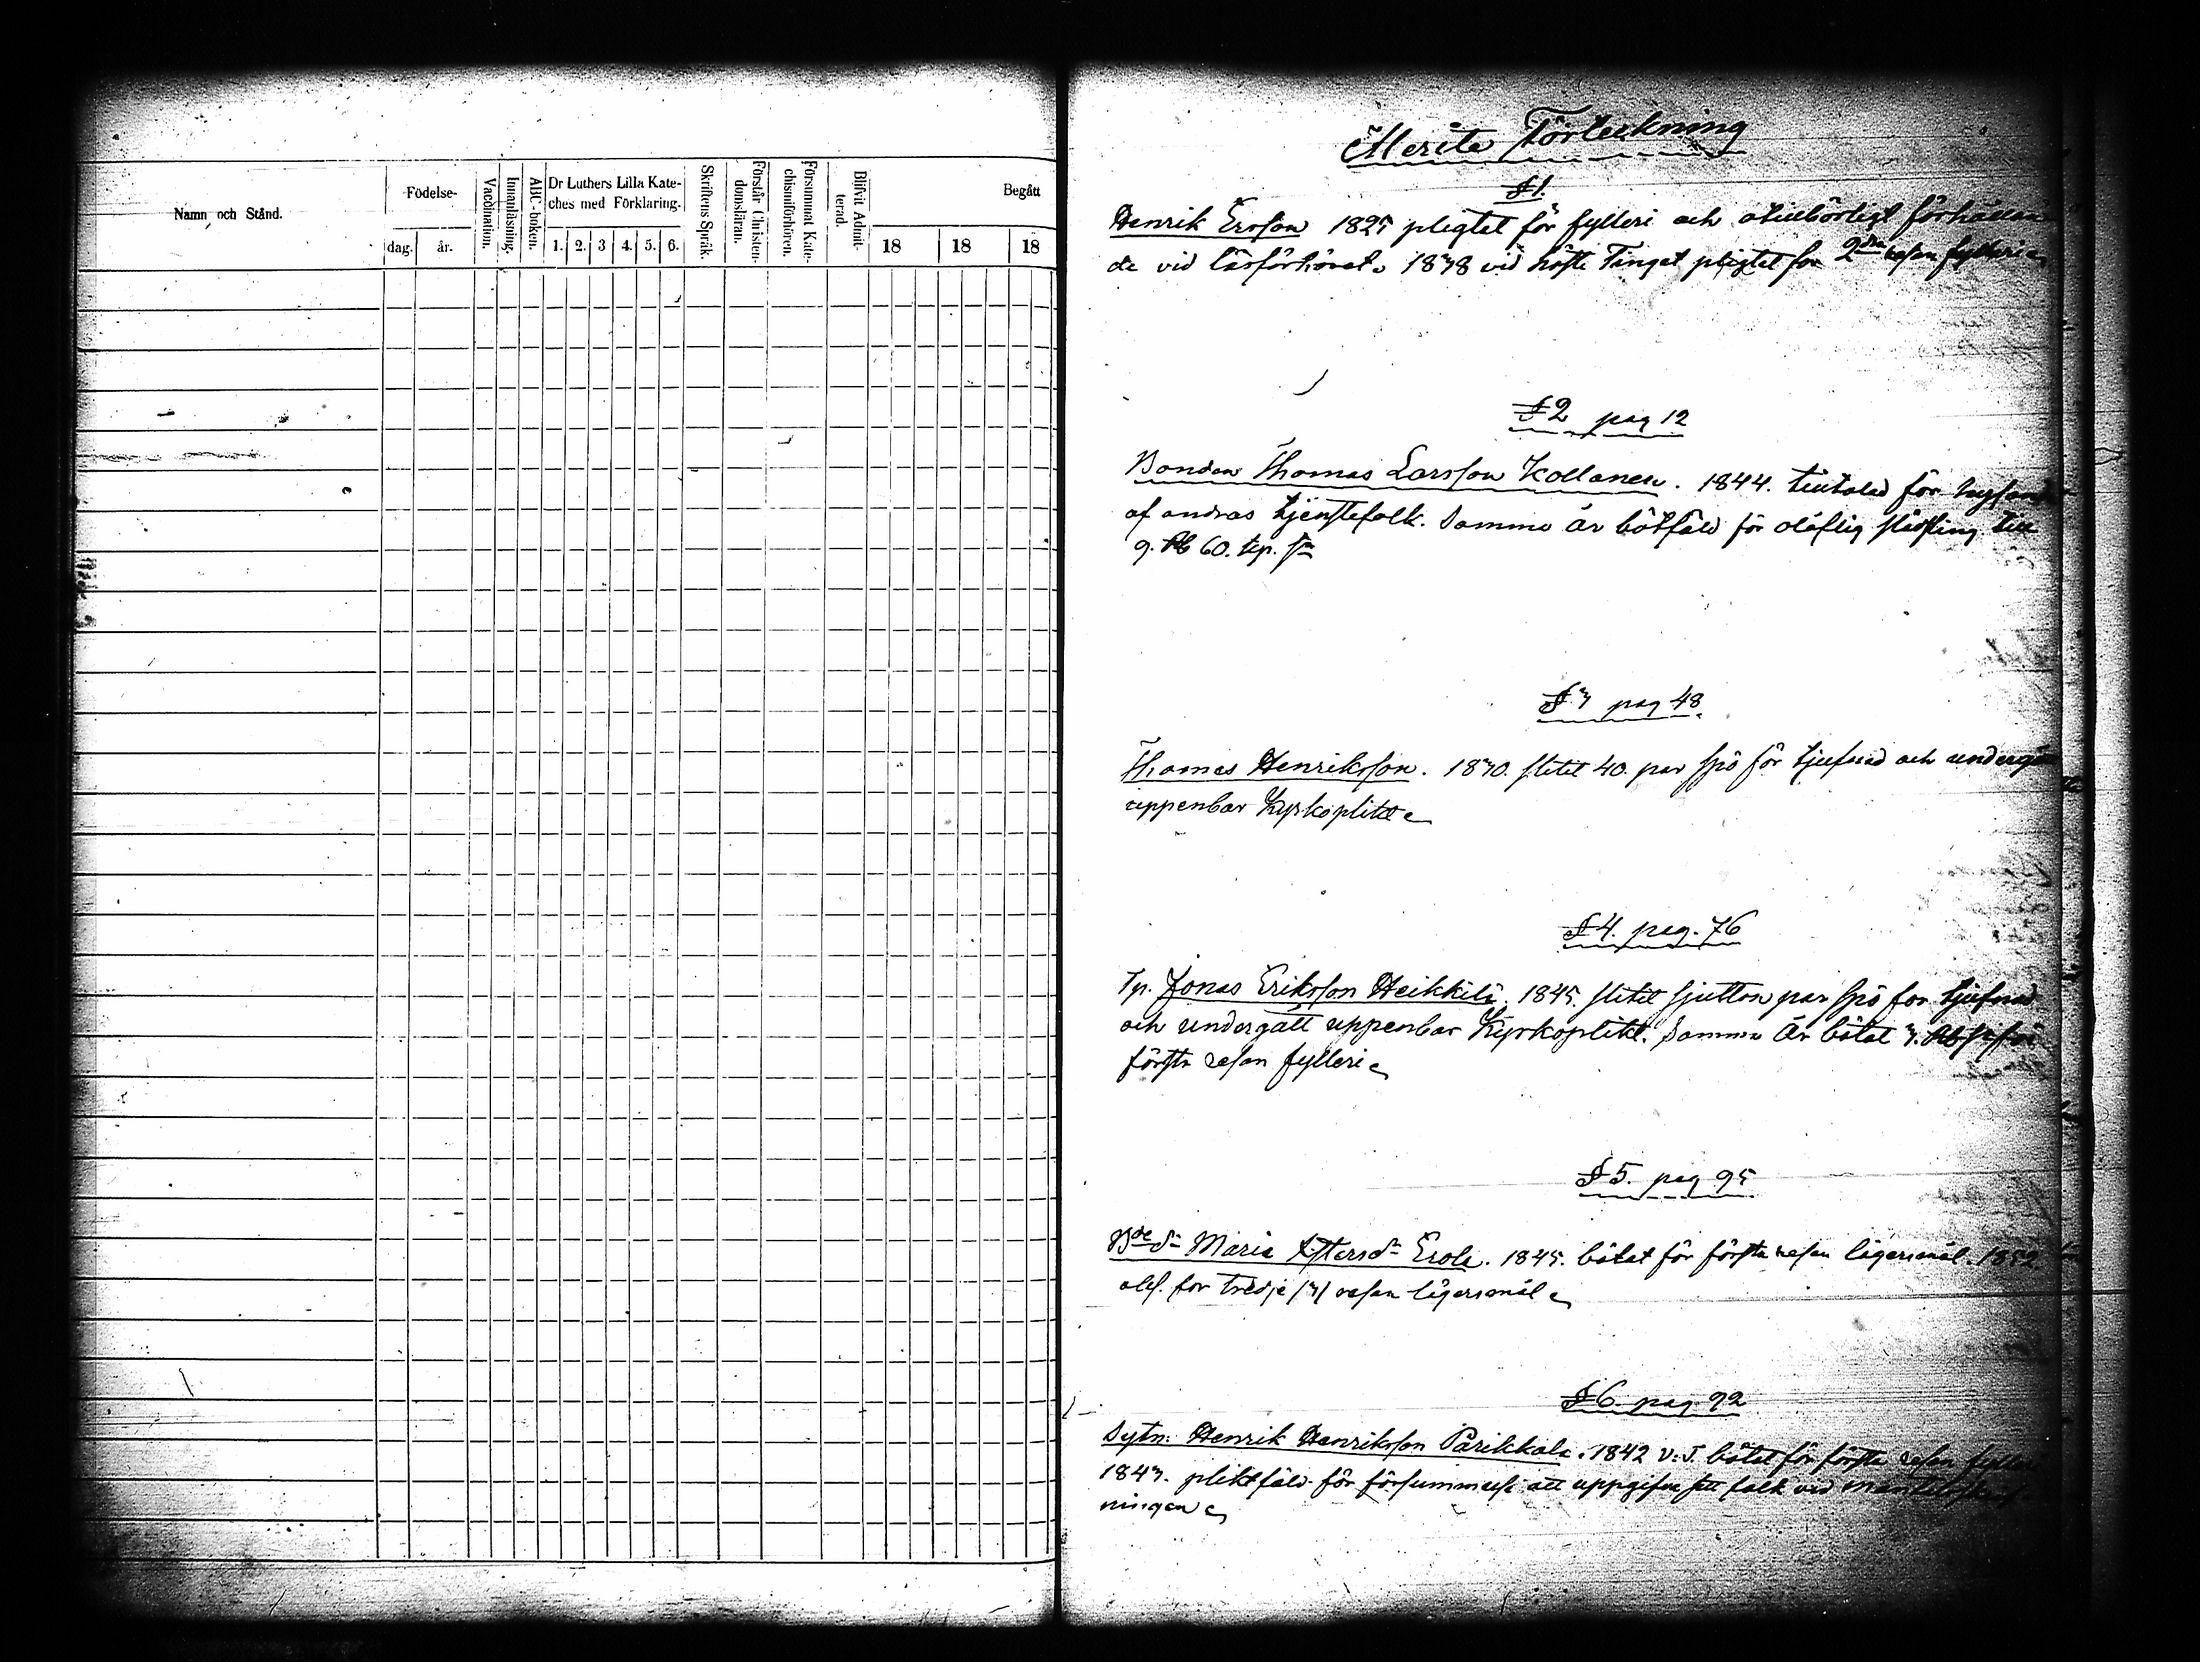 Namn och Stånd.
Födelse-
dag.
år.
Vaccination.
Innanläsning.
ABC-boken.
Dr Luthers Lilla Kate-
ches med Förklaring.
1. 2. 3 4. 5. 6.
Skriftens Språk.
Förstår Christen-
domsläran.
Försummat Kate-
chismiförhören.
Blifvit Admit-
terad.
Begått
18 18 18
Merite Förteckning
§ 1.
Henrik Ersson 1825 pligtat för fylleri och otillbörligt förhållan
de vid läsförhöret. 1838 vid höste Tinget pligtat for 2dra resan fylleri
§ 2 pag 12
Bonden Thomas Larsson Kollanen. 1844. tilltalad för
af andras tjenstefolk. Samma år bötfäld för olåflig till
9. Rb 60. kp. Sr
§ 3 pag 48
Thomas Henriksson. 1830. slitit 40. par spö för tjufnad och undergå
uppenbar Kyrkoplikt
§ 4. pag. 76
Tp. Jonas Eriksson Heikkilä. 1845. slitit sjutton par spö for tjufnad
och undergått uppenbar Kyrkoplikt. Samma År bötat 3. Rb Sr för
första resan fylleri
§ 5. pag 95
Bde dr Maria dr Erola. 1845. bötat för första resan lägersmål. 1852.
for tredje /3/ resan lägersmål
§ 6. pag. 92
Sytn: Henrik Henriksson Parikkala. 1842 v. T. bötat för första resan
1843. pliktfäld för försummelse att uppgifva sitt folk vid
ningen